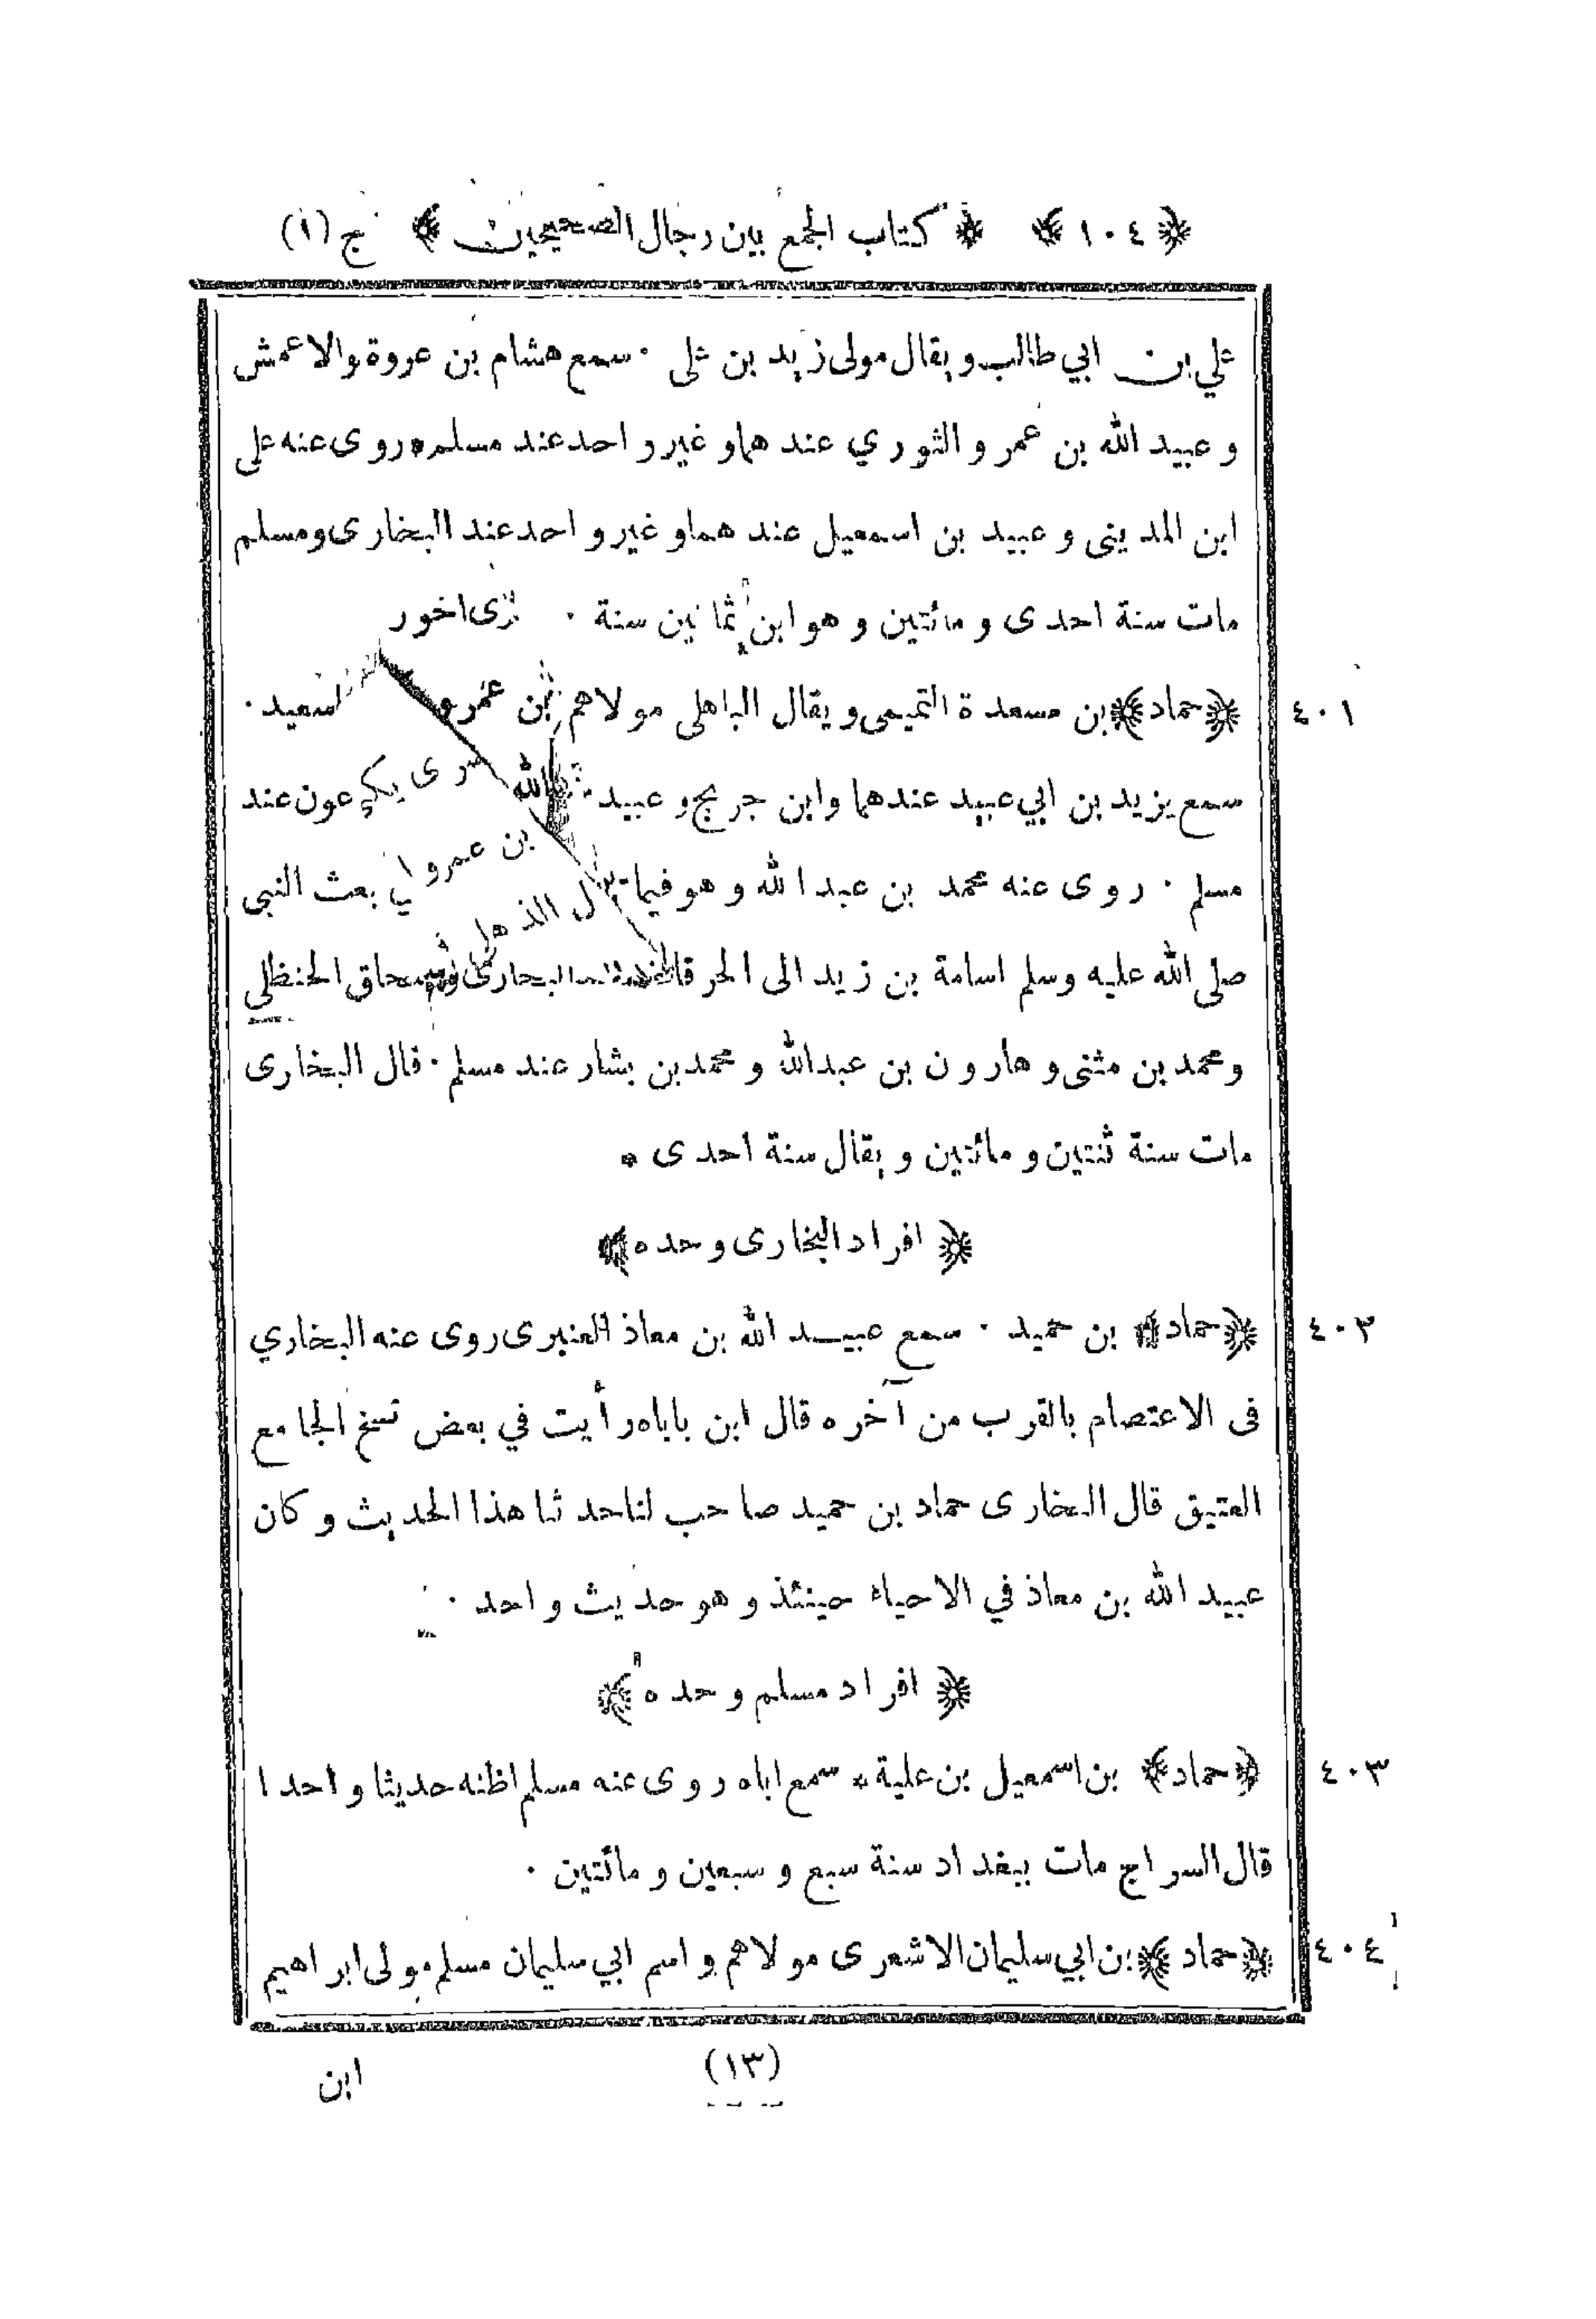 ﴿ ١٠٤ ﴾ ﴿ كتاب الجمع بين رجال الصحيحين ﴾ ج (١)
علي بن ابي طالب ويقال مولى زيد بن علي ٠ سمع هشام بن عروة والاعمش
وعبيد الله بن عمر والثوري عندهما وغير واحد عند مسلم * روى عنه على
ابن المدينى وعبيد بن اسمعيل عندهما وغير واحد عند البخارى ومسلم
مات سنة احدى ومائتين وهو ابن ثمانين سنة ٠
٤٠١ ﴿ حماد ﴾ بن مسعدة التميمى ويقال الباهلى مولاهم سعيد ٠
سمع يزيد بن ابي عبيد عندهما وابن جريج وعبيد الله عون عند
مسلم ٠ روى عنه محمد بن عبد الله وهو فيما الذهلى بعث النبي
صلى الله عليه وسلم اسامة بن زيد الى الحرقات البخارى اسحاق الحنظلي
ومحمد بن مثنى وهارون بن عبدالله ومحمد بن بشار عند مسلم ٠ قال البخارى
مات سنة ثنتين ومائتين ويقال سنة احدى *
﴿ افراد البخارى وحده ﴾
٤٠٢ ﴿ حماد ﴾ بن حميد ٠ سمع عبيد الله بن معاذ العنبرى روى عنه البخاري
فى الاعتصام بالقرب من آخره قال ابن باباه رأيت في بعض نسخ الجامع
العتيق قال البخارى حماد بن حميد صاحب لنا حدثنا هذا الحديث وكان
عبيد الله بن معاذ في الاحياء حينئذ وهو حديث واحد ٠
﴿ افراد مسلم وحده ﴾
٤٠٣ ﴿ حماد ﴾ بن اسمعيل بن علية * سمع اباه روى عنه مسلم اظنه حديثا واحدا
قال السراج مات ببغداد سنة سبع وسبعين ومائتين ٠
٤٠٤ ﴿ حماد ﴾ بن ابي سليمان الاشعرى مولاهم واسم ابي سليمان مسلم مولى ابراهيم
(١٣)
ابن